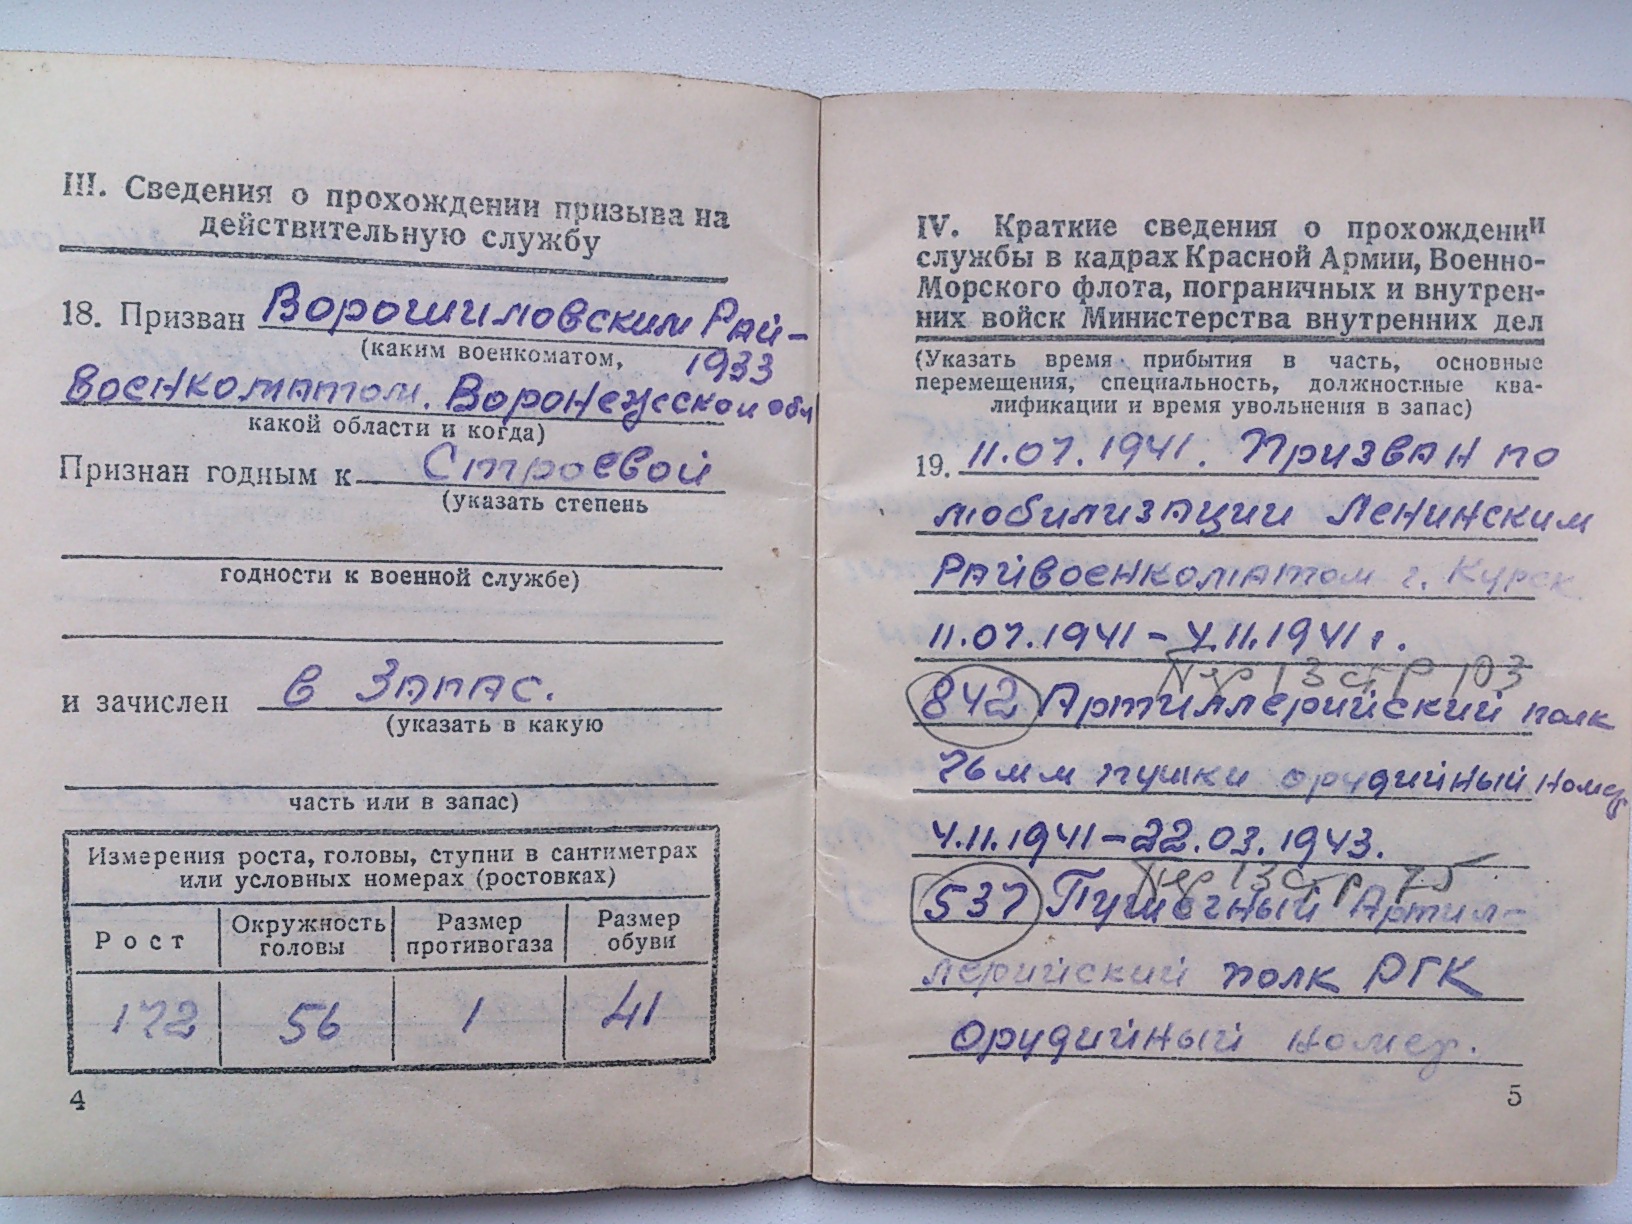 III. Сведения о прохождении призыва на
действительную службу
18. Призван Ворошиловским Рай-
(каким военкоматом, 1933
военкоматом. Воронежской обл
какой области и когда)
Признан годным к Строевой
(указать степень
годности к военной службе)
и зачислен в Запас.
(указать в какую
часть или в запас)
Измерения роста, головы, ступни в сантиметрах
или условных номерах (ростовках)
Рост Окружность головы Размер противогаза Размер обуви
172 56 1 41
4
IV. Краткие сведения о прохождении
службы в кадрах Красной Армии, Военно-
Морского флота, пограничных и внутрен-
них войск Министерства внутренних дел
(Указать время прибытия в часть, основные
перемещения, специальность, должностные ква-
лификации и время увольнения в запас)
19. 11.07.1941. Призван по
мобилизации Ленинским
Райвоенкоматом г. Курск
11.07.1941-7.11.1941г.
Пер 13 стр 103
842 Артиллерийский полк
76 мм пушки орудийный номер
7.11.1941-22.03.1943.
Пер 13 стр 75
537 Пушечный Артил-
лерийский полк РГК
орудийный номер.
5